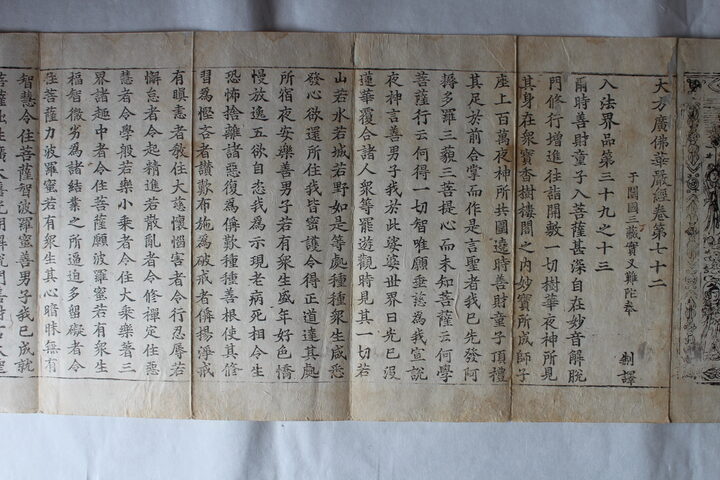 大方廣佛華嚴經卷第七十二
于闐國三藏實叉難陁奉 制譯
入法界品第三十九之十三
爾時善財童子入菩薩甚深自在妙音解脫
門修行增進往詣開敷一切樹華夜神所見
其身在衆寶香樹樓閣之內妙寶所成師子
座上百萬夜神所共圍遶時善財童子頂禮
其足於前合掌而作是言聖者我已先發阿
耨多羅三藐三菩提心而未知菩薩云何學
菩薩行云何得一切智唯願垂慈爲我宣說
夜神言善男子我於此娑婆世界日光已沒
蓮華覆合諸人衆等罷遊觀時見其一切若
山若水若城若野如是等處種種衆生咸悉
發心欲還所住我皆密護令得正道達其處
所宿夜安樂善男子若有衆生盛年好色憍
慢放逸五欲自恣我爲示現老病死相令生
恐怖捨離諸惡復爲稱歎種種善根使其修
習爲慳吝者讚歎布施爲破戒者稱揚淨戒
有瞋恚者教住大慈懷惱害者令行忍辱若
懈怠者令起精進若散亂者令修禪定住惡
慧者令學般若樂小乘者令住大乘樂著三
界諸趣中者令住菩薩願波羅蜜若有衆生
福智微劣爲諸結業之所逼迫多留礙者令
住菩薩力波羅蜜若有衆生其心暗昧無有
智慧令住菩薩智波羅蜜善男子我已成就